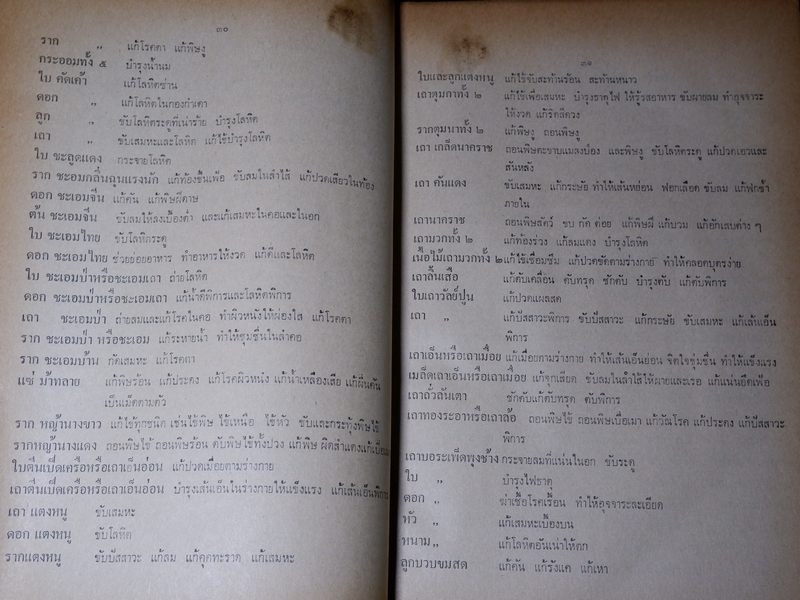 ๓๐
ราก „ แก้โรคตา แก้พิษงู
กระออมทั้ง ๕ บำรุงน้ำนม
ใบ คัดเค้า แก้โลหิตซ่าน
ดอก „ แก้โลหิตในกองกำเดา
ลูก „ ขับโลหิตระดูที่เน่าร้าย บำรุงโลหิต
เถา „ ขับเสมหะและโลหิต แก้ไข้บำรุงโลหิต
ใบ ชะลูดแดง กระจายโลหิต
ราก ชะเอมกลิ่นฉุนแรงนัก แก้ท้องขึ้นเฟ้อ ขับลมในลำไส้ แก้ปวดเสียวในท้อง
ดอก ชะเอมจีน แก้คัน แก้พิษฝีดาษ
ต้น ชะเอมจีน ขับลมให้ลงเบื้องต่ำ และแก้เสมหะในคอและในอก
ใบ ชะเอมไทย ขับโลหิตระดู
ดอก ชะเอมไทย ช่วยย่อยอาหาร ทำอาหารให้งวด แก้ดีและโลหิต
ใบ ชะเอมป่าหรือชะเอมเถา ถ่ายโลหิต
ดอก ชะเอมป่าหรือชะเอมเถา แก้น้ำดีพิการและโลหิตพิการ
เถา ชะเอมป่า ถ่ายลมและแก้โรคในคอ ทำผิวหนังให้ผ่องใส แก้โรคตา
ราก ชะเอมป่า หรือชะเอม แก้ระหายน้ำ ทำให้ชุ่มชื่นในลำคอ
ราก ชะเอมบ้าน กัดเสมหะ แก้โรคตา
แซ่ ม้าทลาย แก้พิษร้อน แก้ประดง แก้โรคผิวหนัง แก้น้ำเหลืองเสีย แก้ผื่นคัน
เป็นเม็ดตามตัว
ราก หญ้านางขาว แก้ไข้ทุกชนิด เช่นไข้พิษ ไข้เหนือ ไข้หัว ขับและกระทุ้งพิษไข้
รากหญ้านางแดง ถอนพิษไข้ ถอนพิษร้อน ดับพิษไข้ทั้งปวง แก้พิษ ผิดสำแดงแก้เบื่อ
ใบตีนเป็ดเครือหรือเถาเอ็นอ่อน แก้ปวดเมื่อยตามร่างกาย
เถาตีนเป็ดเครือหรือเถาเอ็นอ่อน บำรุงเส้นเอ็นในร่างกายให้แข็งแรง แก้เส้นเอ็นพิการ
เถา แตงหนู ขับเสมหะ
ดอก แตงหนู ขับโลหิต
รากแตงหนู ขับปัสสาวะ แก้ลม แก้คุดทะราด แก้เสมหะ
๓๑
ใบและลูกแตงหนู แก้ไข้จับสะท้านร้อน สะท้านหนาว
เถาตุมกาทั้ง ๒ แก้ไข้เพื่อเสมหะ บำรุงธาตุไฟ ให้รู้รสอาหาร ขับผายลม ทำอุจจาระ
ให้งวด แก้ริดสีดวง
รากตุมกาทั้ง ๒ แก้พิษงู ถอนพิษงู
เถา เกล็ดนาคราช ถอนพิษตะขาบแมลงป่อง และพิษงู ขับโลหิตระดู แก้ปวดเอวและ
สันหลัง
เถา คันแดง ขับเสมหะ แก้กระษัย ทำให้เส้นหย่อน ฟอกเลือด ขับลม แก้ฟกช้ำ
ภายใน
เถานาคราช ถอนพิษสัตว์ ขบ กัด ต่อย แก้พิษฝี แก้บวม แก้อักเสบต่าง ๆ
เถามวกทั้ง ๒ แก้ท้องร่วง แก้ลมแดง บำรุงโลหิต
เนื้อไม้เถามวกทั้ง ๒ แก้ไข้เชื่อมซึม แก้ปวดขัดตามร่างกาย ทำให้คลอดบุตรง่าย
เถาลิ้นเสือ แก้ตับเคลื่อน ตับทรุด ชักตับ บำรุงตับ แก้ตับพิการ
ใบเถาวัลย์ปูน แก้ปวดแผลสด
เถา „ แก้ปัสสาวะพิการ ขับปัสสาวะ แก้กระษัย ขับเสมหะ แก้เส้นเอ็น
พิการ
เถาเอ็นหรือเถาเมื่อย แก้เมื่อยตามร่างกาย ทำให้เส้นเอ็นย่อน จิตใจชุ่มชื่น ทำให้แข็งแรง
เมล็ดเถาเอ็นหรือเถาเมื่อย แก้จุกเสียด ขับลมในลำไส้ให้ผายและเรอ แก้แน่นอืดเฟ้อ
เถาถั่วสันดา ชักตับแก้ตับทรุด ตับพิการ
เถาทองระอาหรือเถาล้อ ถอนพิษไข้ ถอนพิษเบื่อเมา แก้วัณโรค แก้ประดง แก้ปัสสาวะ
พิการ
เถาบอระเพ็ดพุงช้าง กระจายลมที่แน่นในอก ขับระดู
ใบ „ บำรุงไฟธาตุ
ดอก „ ฆ่าเชื้อโรคเรื้อน ทำให้อุจจาระละเอียด
หัว „ แก้เสมหะเบื้องบน
หนาม „ แก้โลหิตอันเน่าให้ตก
ลูกบวบขมสด แก้คัน แก้รังแค แก้เหา